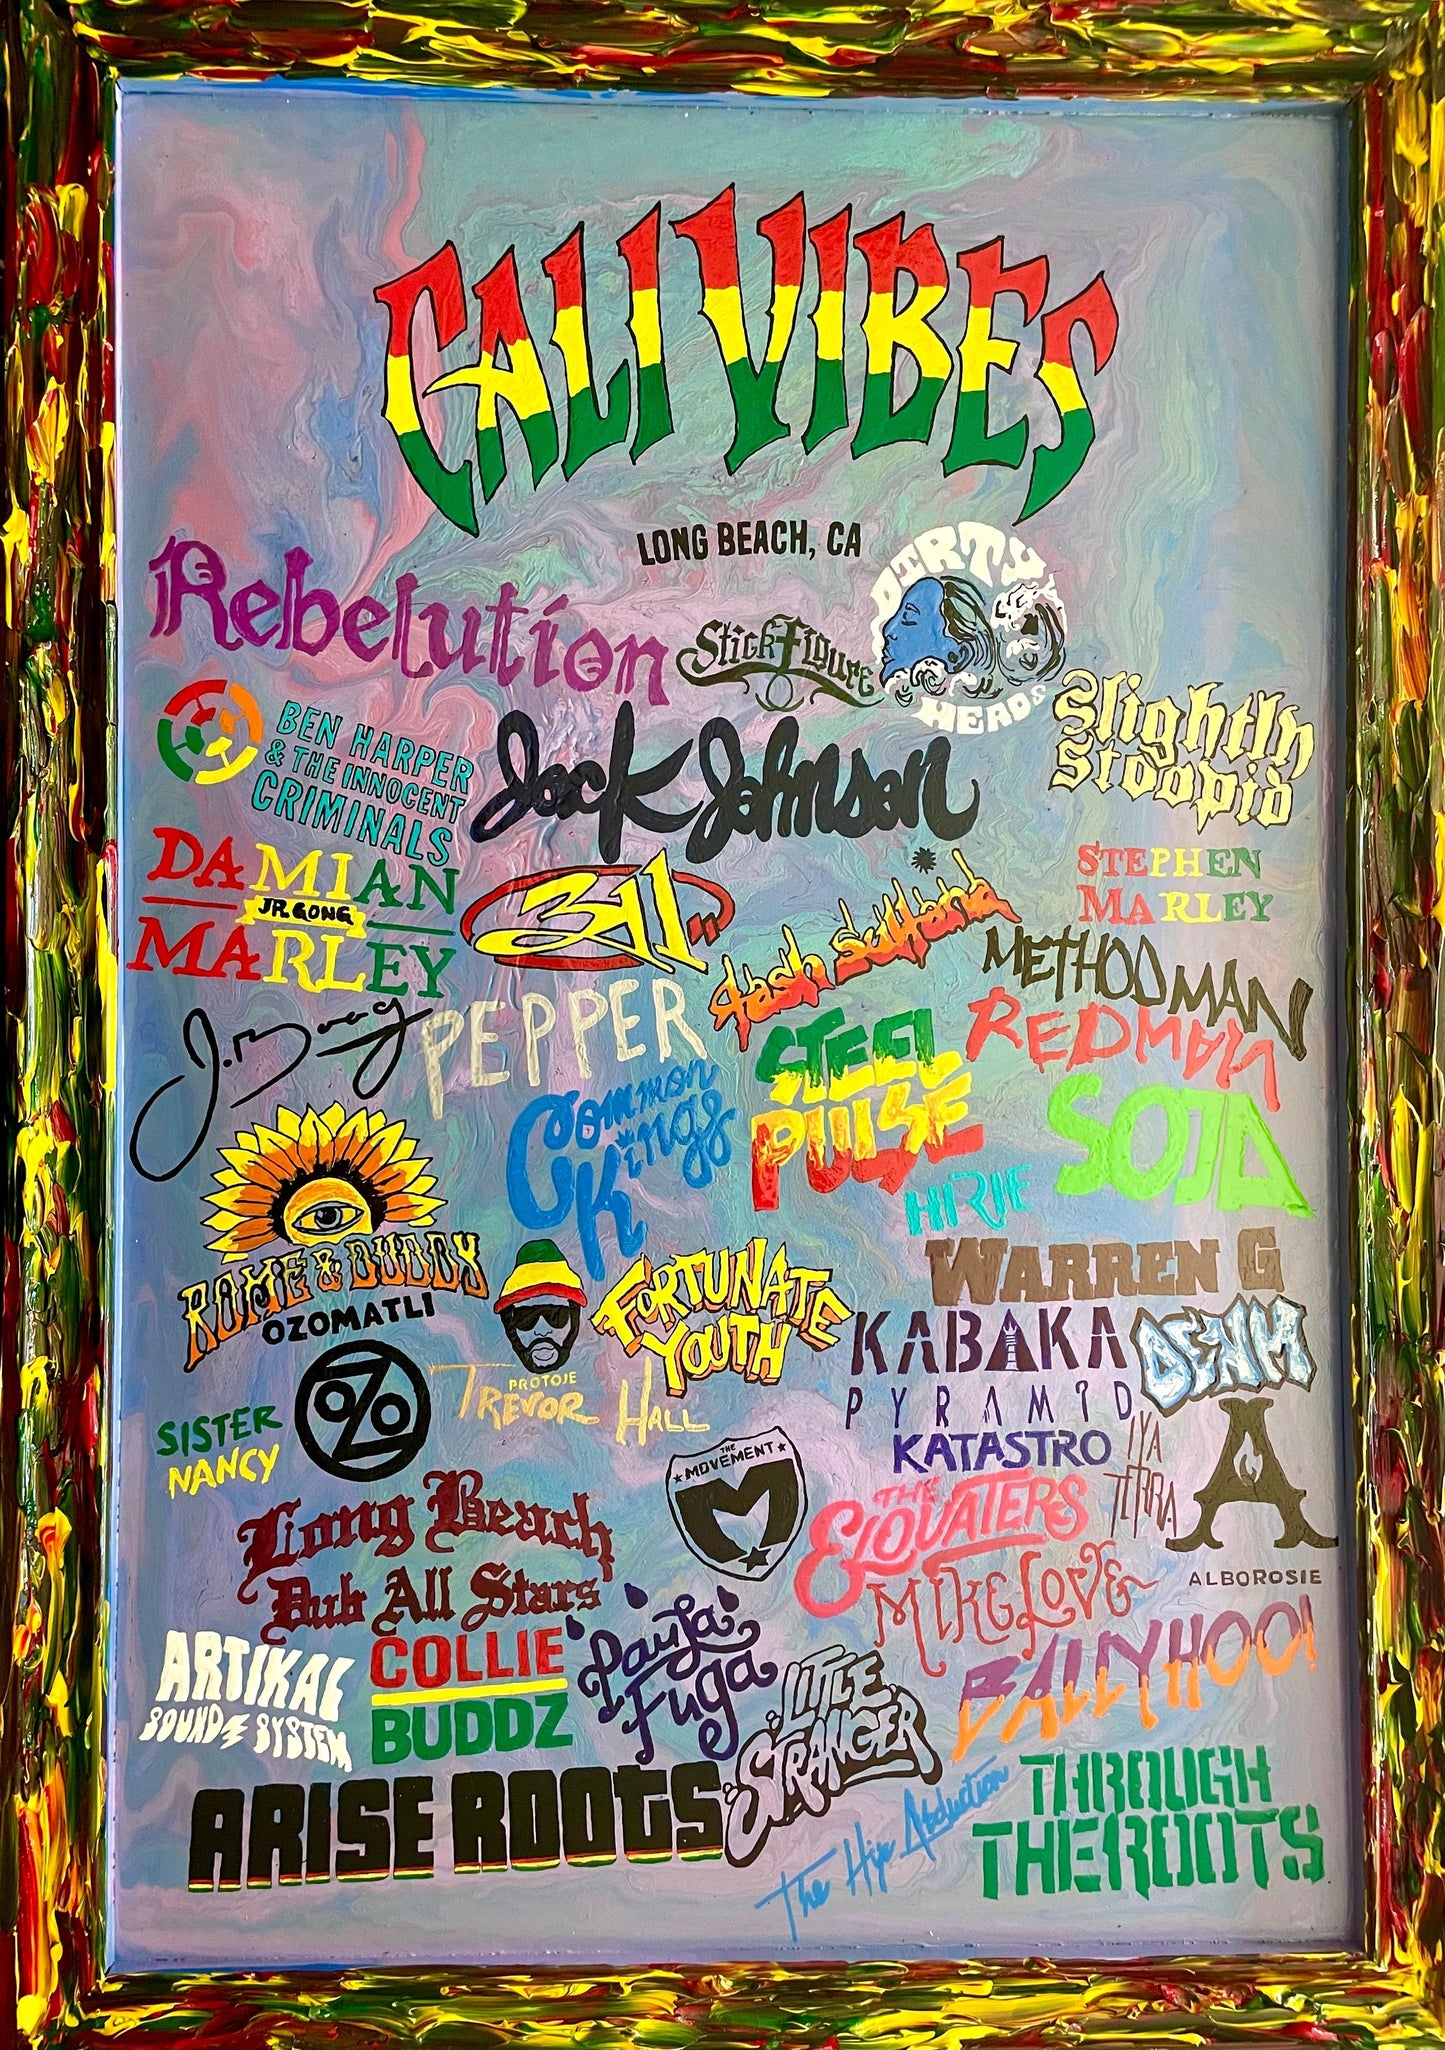 CALI VIBES
LONG BEACH, CA
Rebelution
Stick Figure
DIRTY
HEADS
Slightly
Stoopid
BEN HARPER
& THE INNOCENT
CRIMINALS
Jack Johnson
DAMIAN
JR. GONG
MARLEY
311
tash sultana
STEPHEN
MARLEY
METHOD MAN
REDMAN
J. Boog
PEPPER
STEEL
PULSE
Common
Kings
SOJA
HIRIE
ROME & DUDDY
OZOMATLI
OZO
PROTOJE
FORTUNATE
YOUTH
WARREN G
KABAKA
PYRAMID
DENM
TREVOR HALL
SISTER
NANCY
THE
MOVEMENT
M
KATASTRO
IYA
TERRA
A
ALBOROSIE
THE
ELOVATERS
Long Beach
Dub All Stars
MIKE LOVE
ARTIKAL
SOUND SYSTEM
COLLIE
BUDDZ
Pacha
Fuga
LITTLE
STRANGER
BALLYHOO!
ARISE ROOTS
The Hip Abduction
THROUGH
THE ROOTS